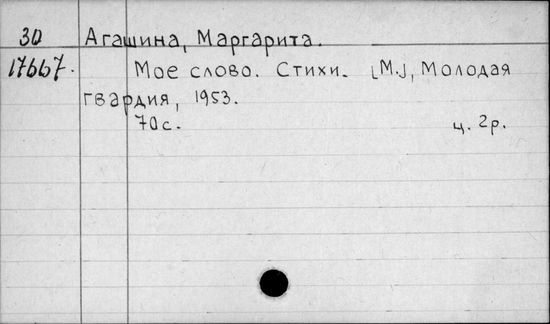 30 Агашина, Маргарита.
17667. Мое слово. Стихи. [М.], Молодая
гвардия, 1953.
70с. ц. 2р.